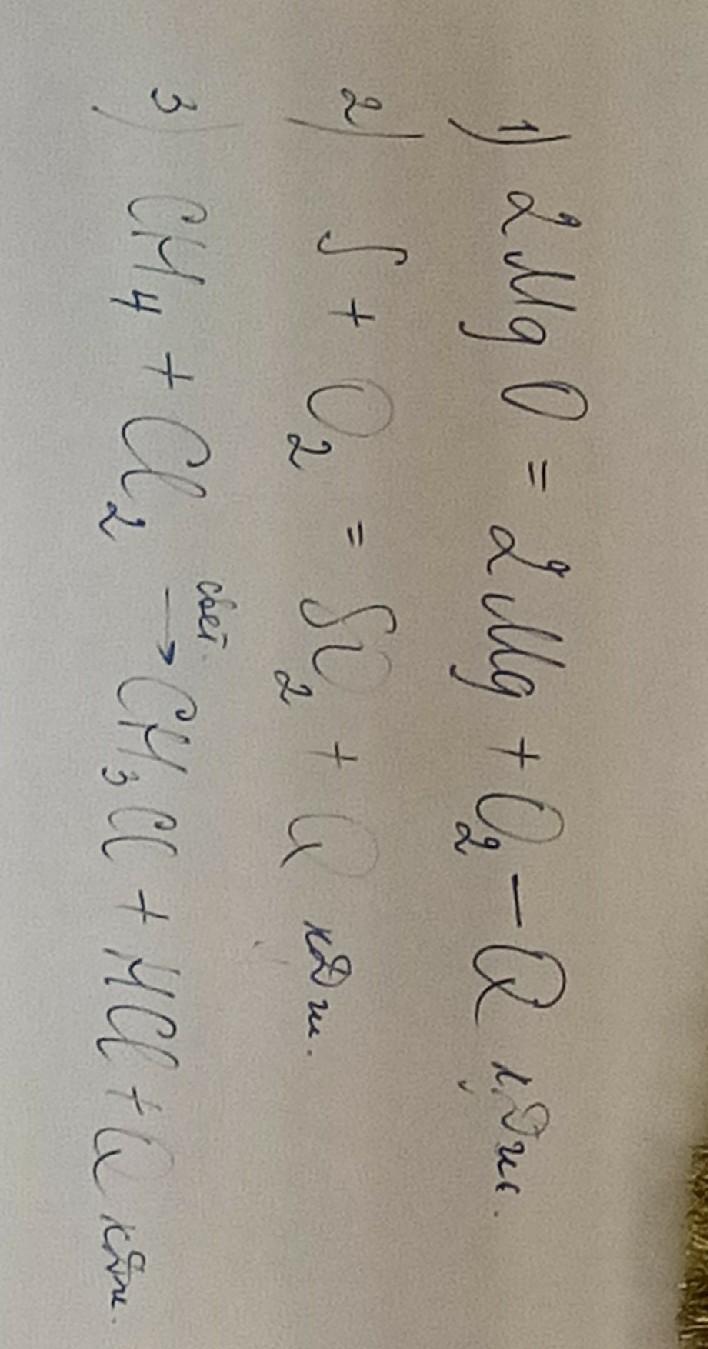 1) 2MgO = 2Mg + O₂ – Q кДж.
2) S + O₂ = SO₂ + Q кДж.
3) CH₄ + Cl₂ свет. → CH₃Cl + HCl + Q кДж.